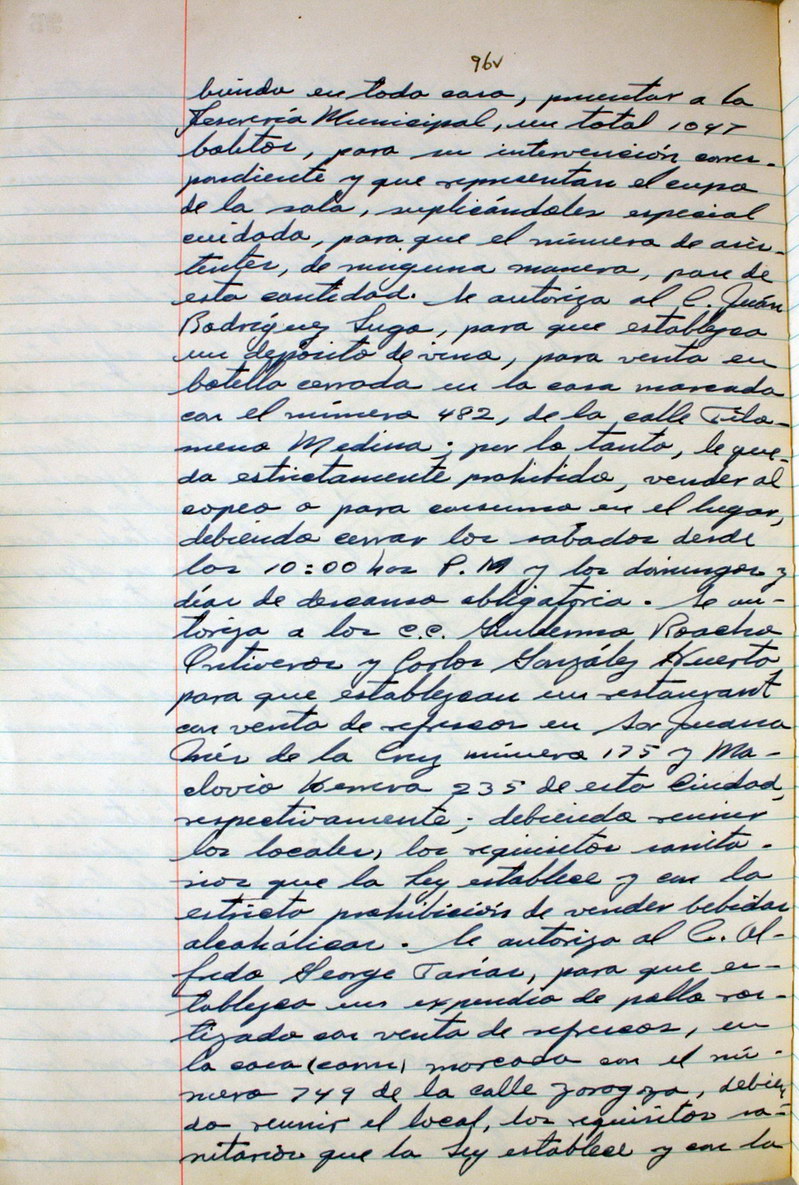 96v
biendo en todo caso, presentar a la
Tesorería Municipal, un total 1047
boletos, para su intervención corres-
pondiente y que representan el cupo
de la sala, suplicándoles especial
cuidado, para que el número de asis-
tentes, de ninguna manera, pase de
esta cantidad. Se autoriza al C. Juán
Rodríguez Lugo, para que establezca
un depósito de vino, para venta en
botella cerrada en la casa marcada
con el número 482, de la calle Filo-
meno Medina; por lo tanto, le que-
da estrictamente prohibido, vender al
copeo o para consumo en el lugar,
debiendo cerrar los sabados desde
las 10:00 hos P.M y los domingos y
días de descanso obligatorio. Se au-
toriza a los C.C. Guillermo Roacho
Ontiveros y Carlos González Huerta
para que establezcan un restaurant
con venta de refrescos en Sor Juana
Inés de la Cruz número 175 y Ma-
clovio Herrera 235 de esta Ciudad,
respectivamente; debiendo reunir
los locales, los requisitos sanita-
rios que la Ley establece y con la
estricta prohibición de vender bebidas
alcohólicas. Se autoriza al C. Al-
fredo George Farías, para que es-
tablezca un expendio de pollo ros-
tizado con venta de refrescos, en
la casa (casa) marcada con el nú-
mero 749 de la calle Zaragoza, debien
do reunir el local, los requisitos sa-
nitarios que la Ley establece y con la